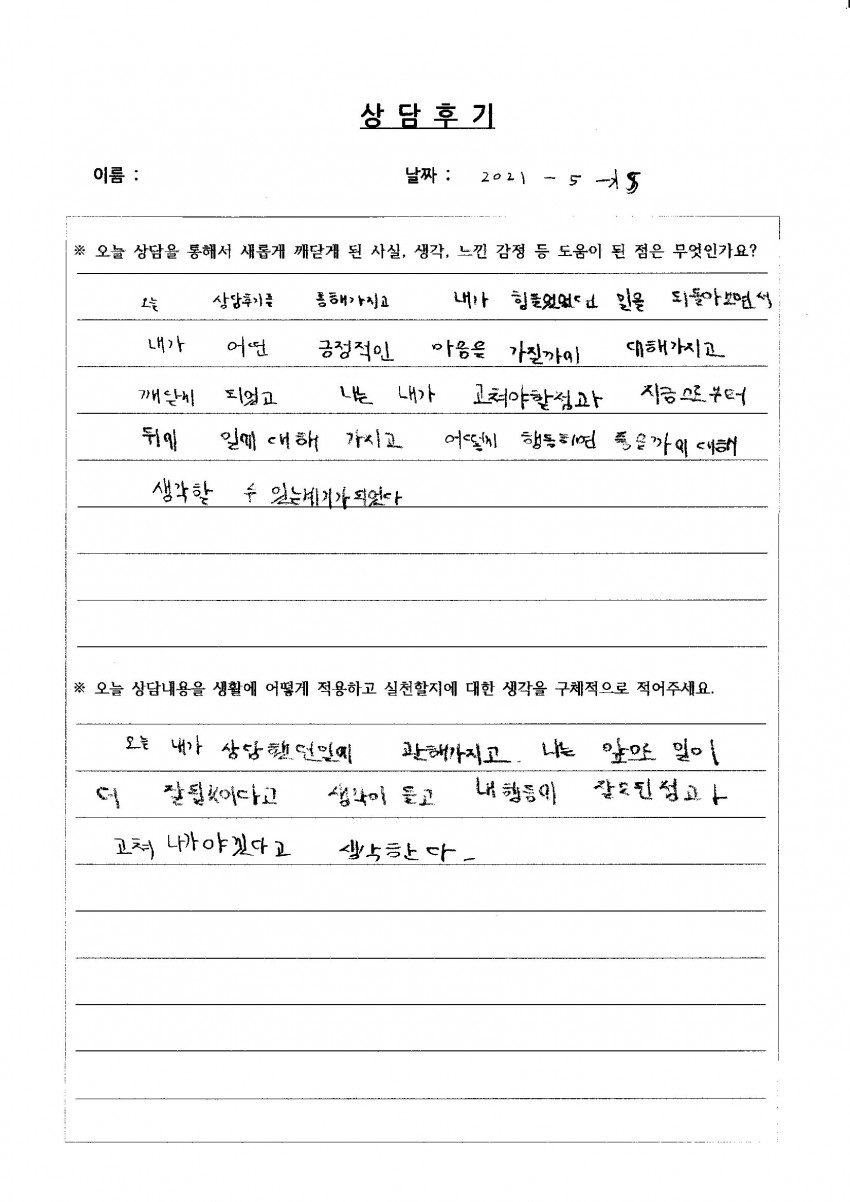 상 담 후 기
이름 : 날짜 : 2021 - 5 -
※ 오늘 상담을 통해서 새롭게 깨닫게 된 사실, 생각, 느낀 감정 등 도움이 된 점은 무엇인가요?
오늘 상담후기를 통해가지고 내가 힘들었었던 일을 되돌아보면서
내가 어떤 긍정적인 마음을 가질까의 대해가지고
깨닫게 되었고 나는 내가 고쳐야할점과 지금으로부터
뒤의 일에 대해 가지고 어떻게 행동하면 좋을까의 대해
생각할 수 있는계기가되었다
※ 오늘 상담내용을 생활에 어떻게 적용하고 실천할지에 대한 생각을 구체적으로 적어주세요.
오늘 내가 상담했던일에 관해가지고 나는 앞으로 일이
더 잘될것이다고 생각이 들고 내행동의 잘못된점
고쳐 나가야겠다고 생각한다